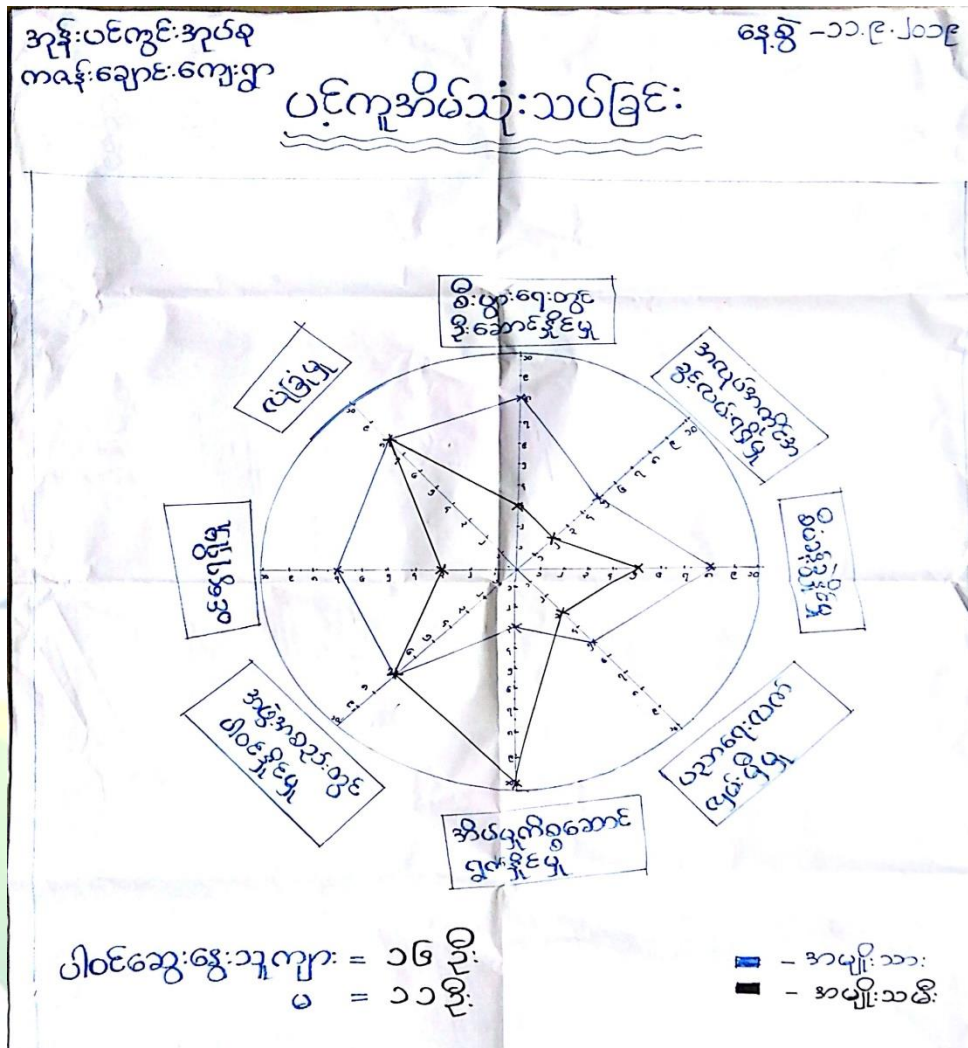 အုန်းပင်ကွင်းအုပ်စု
ကဇန်းချောင်းကျေးရွာ
နေ့စွဲ -၁၁.၉.၂၀၁၉
ပင့်ကူအိမ်သုံးသပ်ခြင်း
စီးပွားရေးတွင်
ဦးဆောင်နိုင်မှု
အလုပ်အကိုင်အ
ခွင့်လမ်းရရှိမှု
စီမံခန့်ခွဲနိုင်မှု
ပညာရေးလက်
လှမ်းမှီမှု
အိမ်မှုကိစ္စဆောင်
ရွက်နိုင်မှု
အဖွဲ့အစည်းတွင်
ပါဝင်နိုင်မှု
ဝင်ငွေရရှိမှု
လုံခြုံမှု
ပါဝင်ဆွေးနွေးသူကျား = ၁၆ ဦး
မ = ၁၁ဦး
- အမျိုးသား
- အမျိုးသမီး